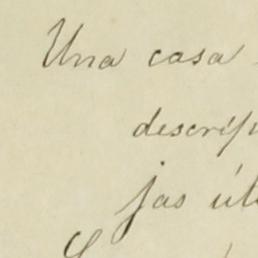 Una casa
descrip
jas úl